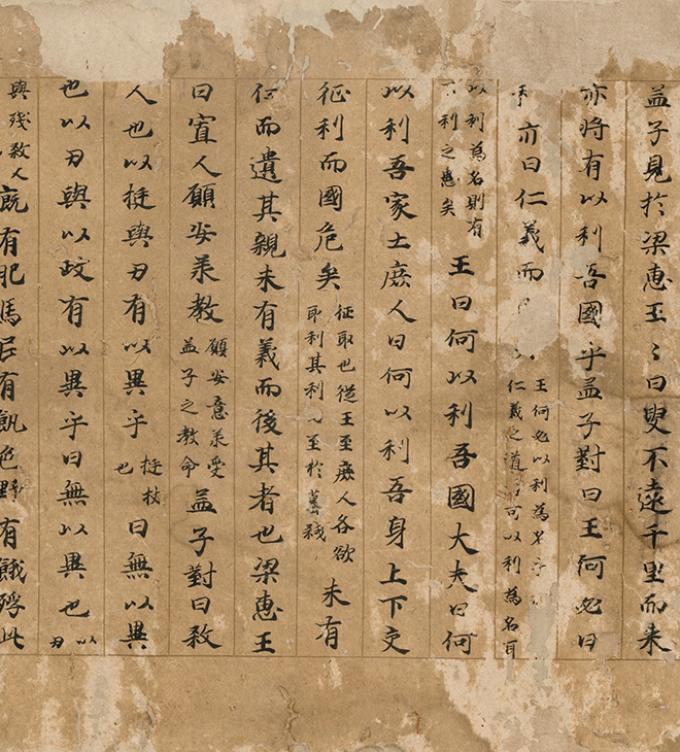 孟子見於梁惠王〻曰叟不遠千里而來
亦將有以利吾國乎孟子對曰王何必曰
亦曰仁義而
王何必以利為名乎
仁義之道可以利為名耳
以利為名則有
不利之患矣
王曰何以利吾國大夫曰何
以利吾家士庶人曰何以利吾身上下交
征利而國危矣
征取也從王至庶人各欲
取利其利至於篡弒
未有
仁而遺其親未有義而後其者也梁惠王
曰寡人願安承教
願安意承受
孟子之教命
孟子對曰殺
人也以挺與刃有以異乎
挺杖
也
曰無以異
也以刃與以政有以異乎曰無以異也
以
刃
與殘殺人
廐有肥馬民有飢色野有餓殍此